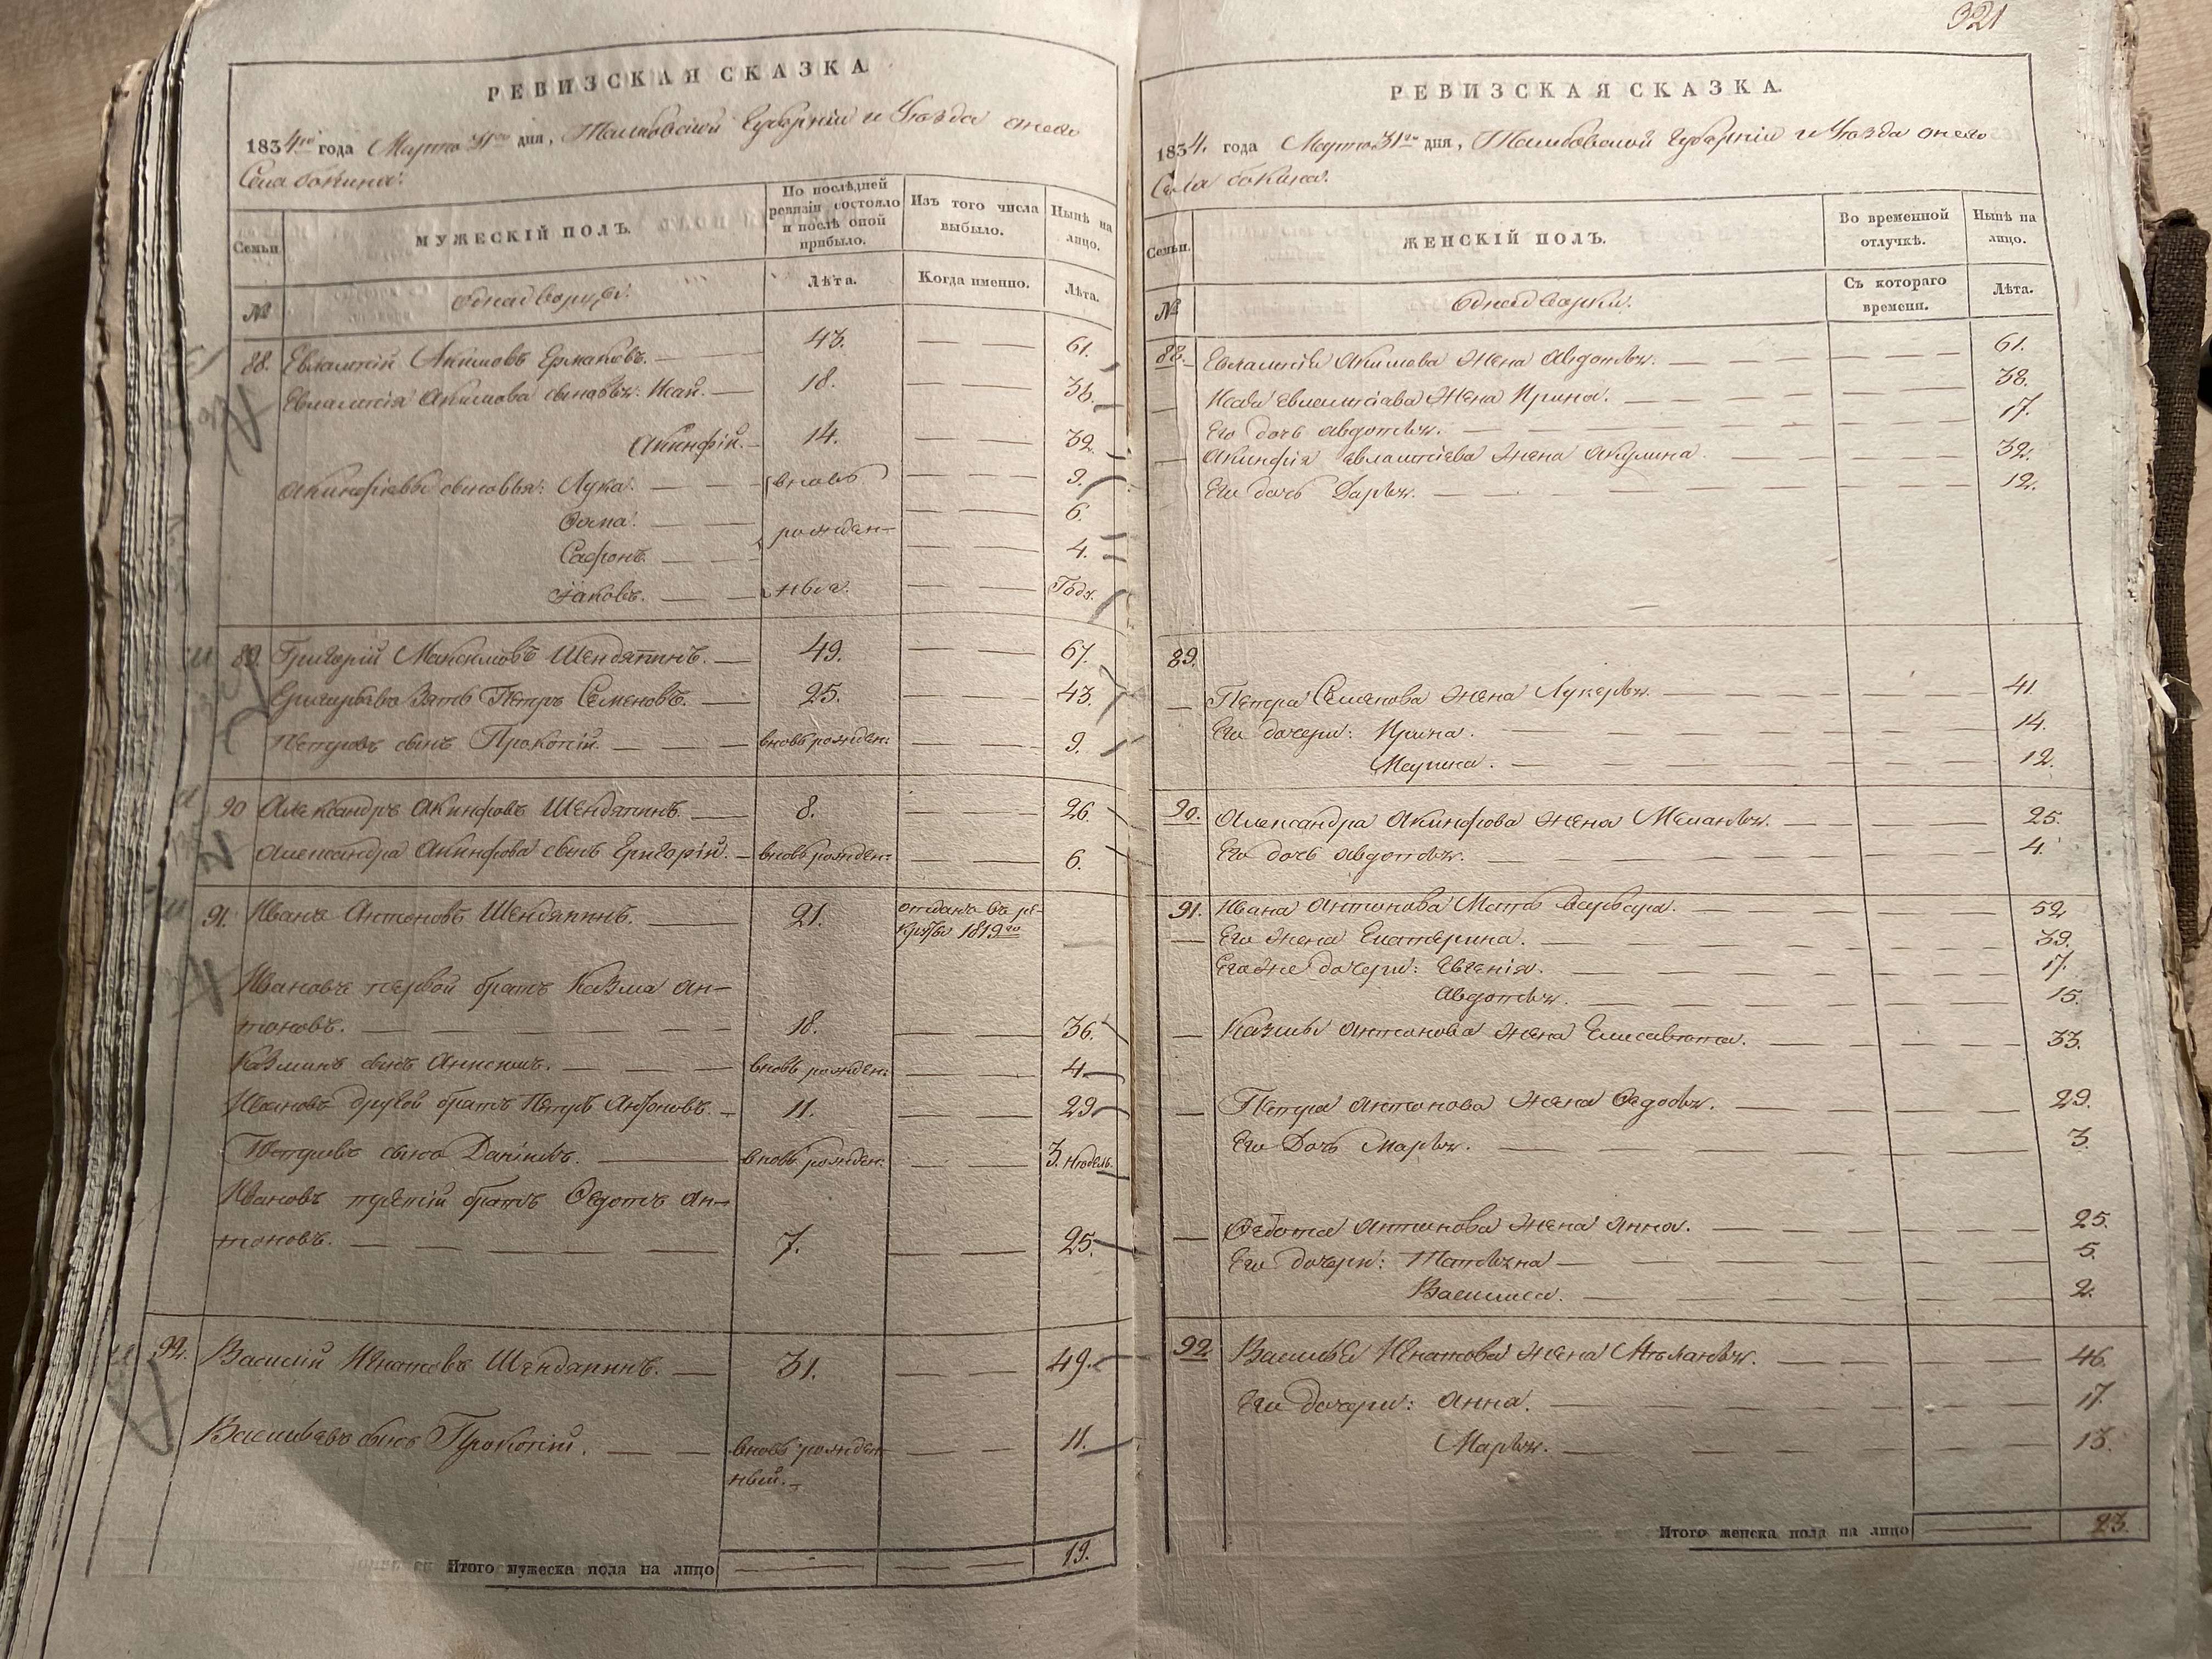 321
РЕВИЗСКАЯ СКАЗКА
1834го года Марта 31го дня, Тамбовской Губернiи и Уѣзда онаго
Села бокина.
Семьи
МУЖЕСКIЙ ПОЛЪ.
По послѣдней ревизiи состояло и послѣ оной прибыло.
Изъ того числа выбыло.
Нынѣ на лицо.
№
однадворцы.
Лѣта.
Когда именно.
Лѣта.
88. Евлампiй Акимовъ Ермаковъ. 43. 61.
Евлампiя Акимова сыновья: Исай. 18. 36.
Акинфiй. 14. 32.
Акинфiевы сыновья: Лука. вновь 9.
Фома. рожден- 6.
Сафронъ. 4.
Iаковъ. ныя. Годъ.
89. Григорiй Максимовъ Шендяпинъ. 49. 67.
Григорьева Зять Петръ Семеновъ. 25. 43.
Петровъ сынъ Прокопiй. вновь рожден: 9.
90 Александръ Акинфовъ Шендяпинъ. 8. 26.
Александра Акинфова сынъ Григорiй. вновь рожден: 6.
91. Иванъ Антоновъ Шендяпинъ. 21. отданъ въ ре-
круты 1819го
Ивановъ первой братъ Казма Ан-
тоновъ. 18. 36
Казминъ сынъ Анисимъ. вновь рожден: 4.
Ивановъ другой братъ Петръ Антоновъ. 11. 29
Петровъ сынъ Данiилъ. вновь рожден: 3. недели.
Ивановъ третiй братъ Федотъ Ан-
тоновъ. 7. 25.
92. Василiй Игнатовъ Шендяпинъ. 31. 49.
Васильевъ сынъ Прокопiй. вновь рожден 11.
ный.
Итого мужеска пола на лицо 19.
РЕВИЗСКАЯ СКАЗКА.
1834. года Марта 31го дня, Тамбовской Губернiи и Уѣзда онаго
Села бокина.
Семьи.
ЖЕНСКIЙ ПОЛЪ.
Во временной отлучкѣ.
Нынѣ на лицо.
№
Однодворки.
Съ котораго времени.
Лѣта.
88. Евлампiя Акимова жена Авдотья. 61.
Исая Евлампiева жена Ирина. 38.
Его дочь Авдотья. 17.
Акинфiя Евлампiева жена Акулина. 32.
Его дочь Дарья. 12.
89.
Петра Семенова жена Лукерья. 41.
Его дочери: Ирина. 14.
Марина. 12.
90. Александра Акинфова жена Меланья. 25.
Его дочь Авдотья. 4.
91. Ивана Антонова Мать Варвара. 52
Его жена Екатерина. 39.
Егоже дочери: Евгенiя. 17.
Авдотья. 15.
Казмы Антонова жена Елисавета. 33.
Петра Антонова жена Федосья. 29.
Его Дочь Марья. 3.
Федота Антонова жена Анна. 25.
Его дочери: Татьяна 5.
Василиса. 2.
92 Василья Игнатова жена Меланья. 46.
Его дочери: Анна. 17.
Марья. 13.
Итого женска пола на лицо 23.